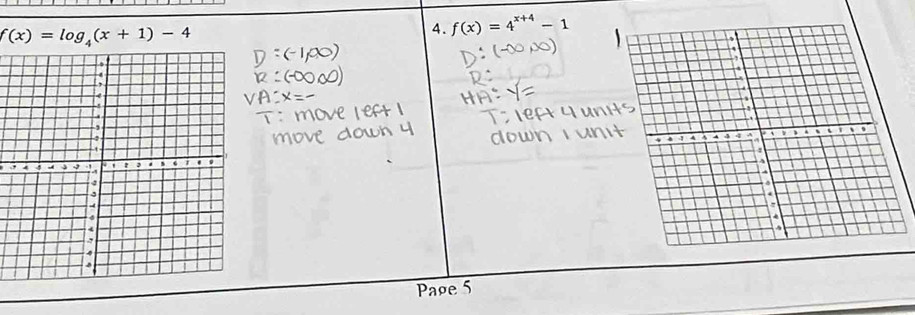 f(x) = log₄(x + 1) − 4
D: (-1,∞)
R: (-∞ ∞)
VA: x = -
T: move left 1
move down 4
4. f(x) = 4^{x+4} − 1
D: (-∞,∞)
R:
HA: y =
T: left 4 units
down 1 unit
Page 5